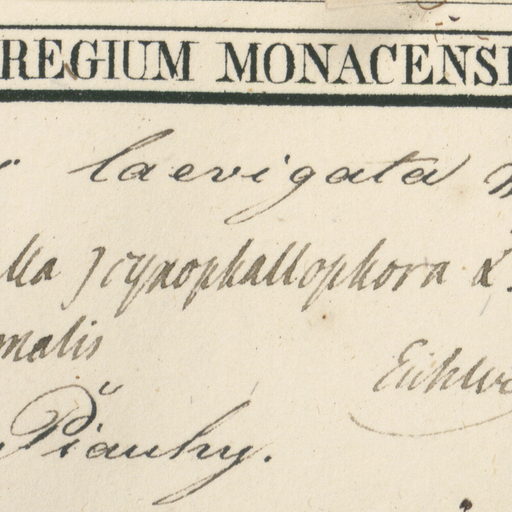 REGIUM MONACENS
laevigata
lla cynophallophora L.
malis
Eichl
Piauhy.